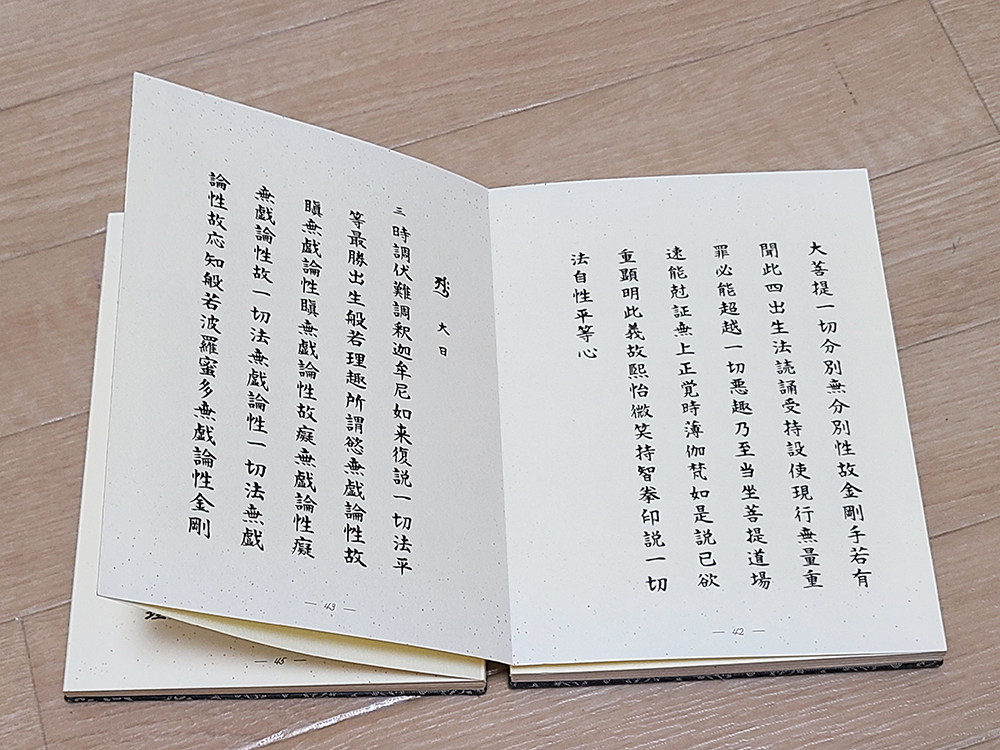 大菩提一切分別無分別性故金剛手若有
聞此四出生法読誦受持設使現行無量重
罪必能超越一切悪趣乃至当坐菩提道場
速能尅証無上正覚時薄伽梵如是説已欲
重顕明此義故熙怡微笑持智拳印説一切
法自性平等心
— 42 —
大日
三時調伏難調釈迦牟尼如来復説一切法平
等最勝出生般若理趣所謂慾無戯論性故
瞋無戯論性瞋無戯論性故癡無戯論性癡
無戯論性故一切法無戯論性一切法無戯
論性故応知般若波羅蜜多無戯論性金剛
— 43 —
— 45 —